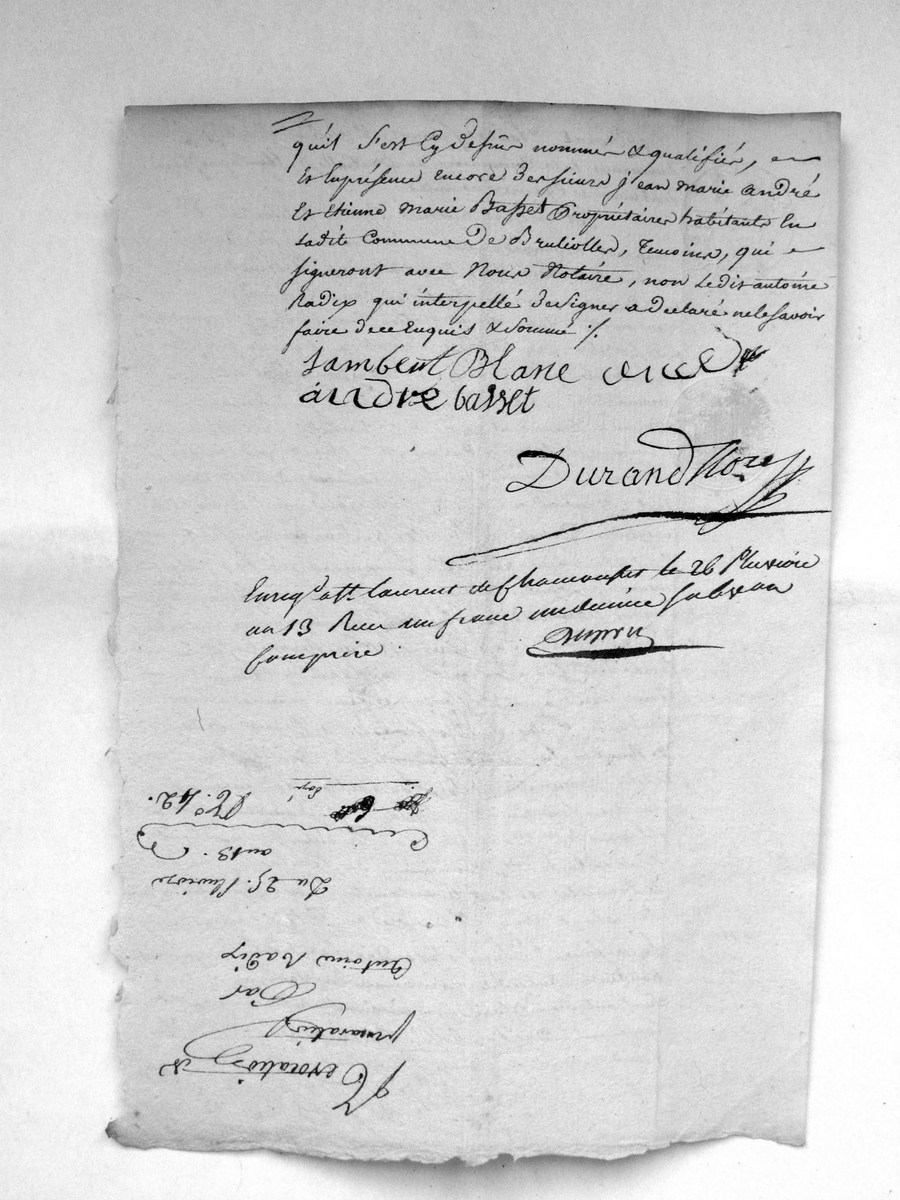 qu'il s'est Cy dessus nommé & qualifié, en
Et En présence encore de sieurs jean marie andré
Et Etienne marie Basset Propriétaires habitants En
Ladite Commune De Brulioller, temoins, qui
signeront avec Nous Notaire, non Ledit antoine
Radix qui interpellé de signer a declaré ne le savoir
faire de ce Enquis & sommé ./.
Lambert Blanc
andré basset
Durand Nore
Enreg. a St. Laurent de Chamousset le 26 Pluviose
an 13 Recu un franc subvon
Comprise
N.o 42.
an 13.
Du 25. Pluviose
Antoine Radix
Par
Revocation